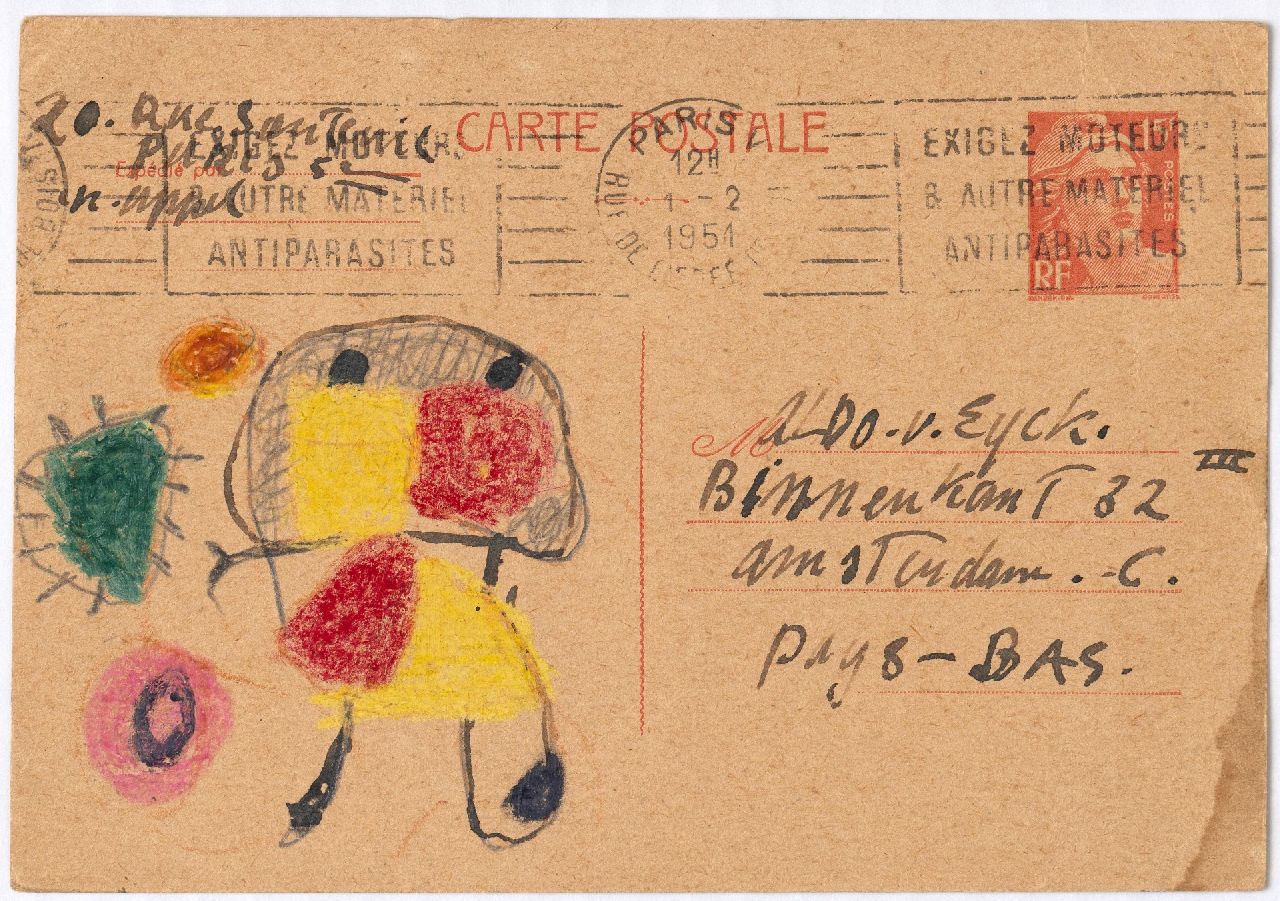 20. Rue Santeuil
PARIS 5e
Expédié par
K. Appel
CARTE POSTALE
PARIS
12H
1 - 2
1951
RUE DE
EXIGEZ MOTEURS
& AUTRE MATERIEL
ANTIPARASITES
EXIGEZ MOTEURS
& AUTRE MATERIEL
ANTIPARASITES
POSTES
RF
M Aldo. v. Eyck.
Binnenkant 32 III
amsterdam. - C.
Pays - BAS.